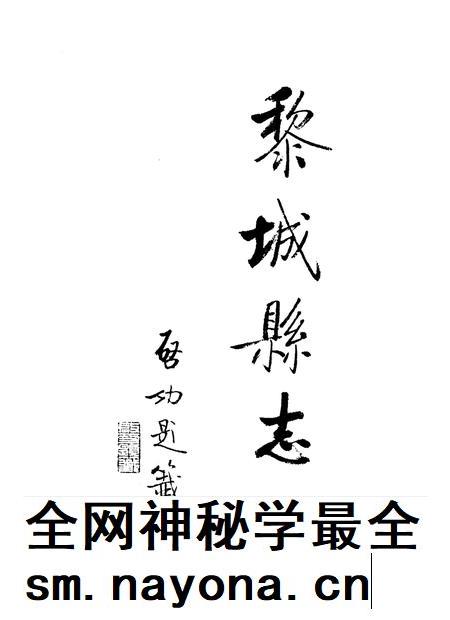 黎城縣志
啓功題籤
全网神秘学最全
sm.nayona.cn